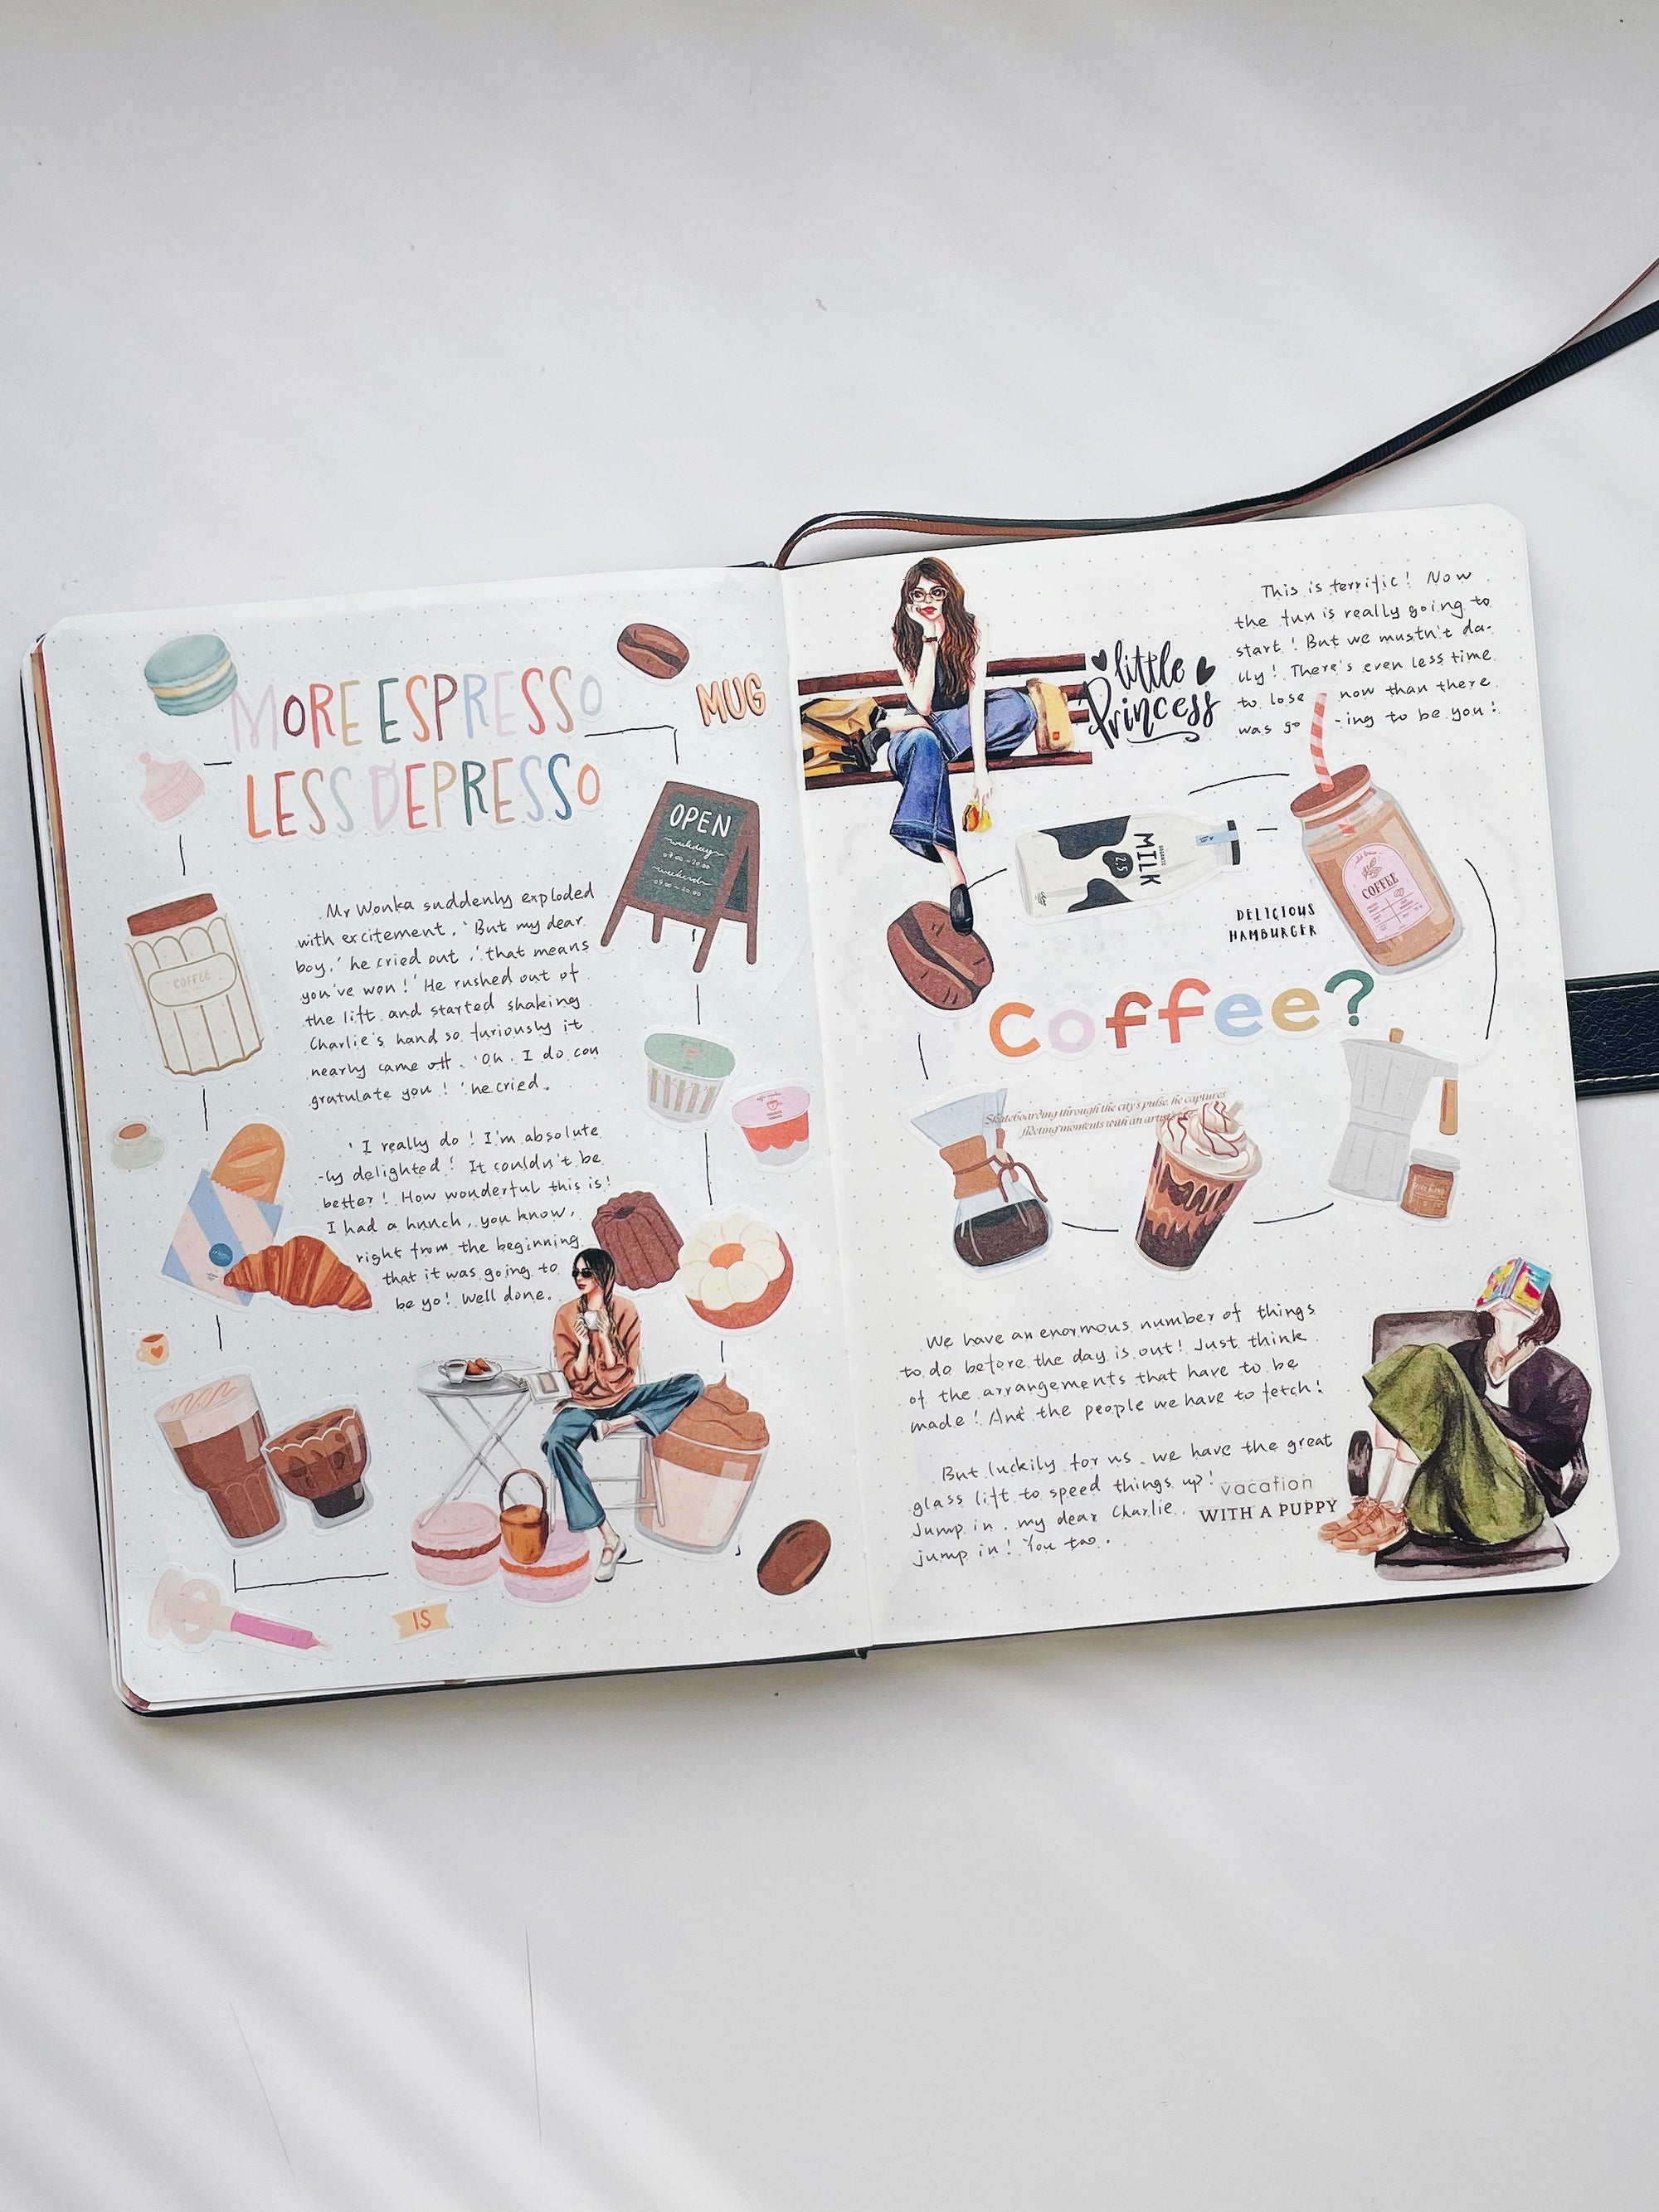 MORE ESPRESSO
LESS DEPRESSO
MUG
OPEN
weekdays
weekends
COFFEE
Mr Wonka suddenly exploded
with excitement. 'But my dear
boy,' he cried out, 'that means
you've won!' He rushed out of
the lift and started shaking
Charlie's hand so furiously it
nearly came off. 'Oh, I do con
gratulate you!' he cried.
'I really do! I'm absolute
-ly delighted! It couldn't be
better! How wonderful this is!
I had a hunch, you know,
right from the beginning
that it was going to
be yo! Well done.
IS
little
Princess
This is terrific! Now
the fun is really going to
start! But we mustn't da-
lly! There's even less time
to lose now than there
was go -ing to be you!
MILK
COFFEE
DELICIOUS
HAMBURGER
coffee?
Skateboarding through the city's pulse, he captures
fleeting moments with an artist's
We have an enormous number of things
to do before the day is out! Just think
of the arrangements that have to be
made! And the people we have to fetch!
But luckily for us, we have the great
glass lift to speed things up!
Jump in, my dear Charlie,
jump in! You too.
vacation
WITH A PUPPY